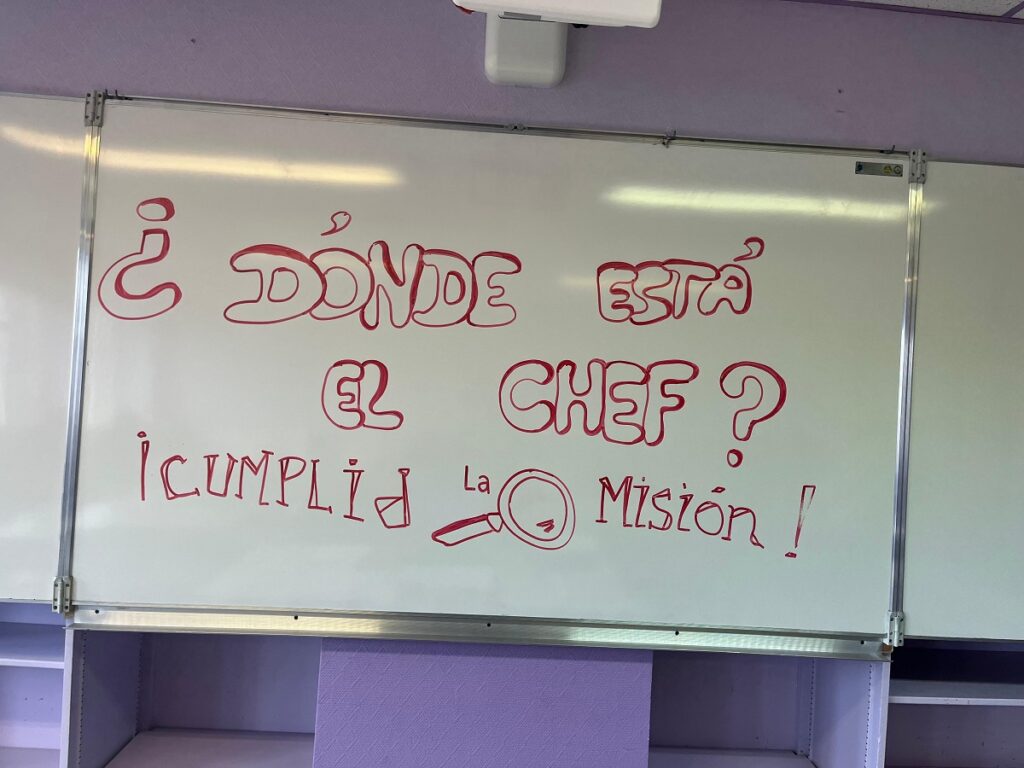 ¿DÓNDE ESTÁ
EL CHEF?
¡CUMPLId La MISIÓn!